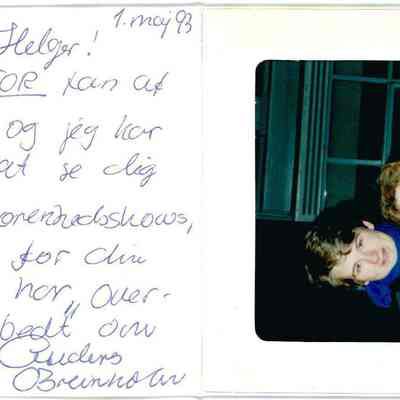 1. maj 93
Helger!
TOR kan at
og jeg har
at se dig
orenhedsshows,
for din
har „over-
bedt" om
Anders
Breinholm